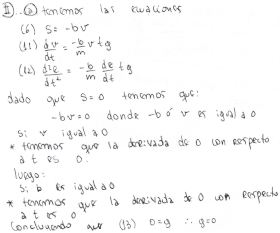 II).. a) tenemos las ecuaciones
(6) S = -bv
(11) dv/dt = -b/m v + g
(12) d²e/dt² = -b/m de/dt + g
dado que S=0 tenemos que:
-bv=0 donde -b ó v es igual a 0
si v igual a 0
* tenemos que la derivada de 0 con respecto
a t es 0.
luego:
si b es igual a 0
* tenemos que la derivada de 0 con respecto
a t es 0
Concluyendo que (13) 0=g ∴ g=0